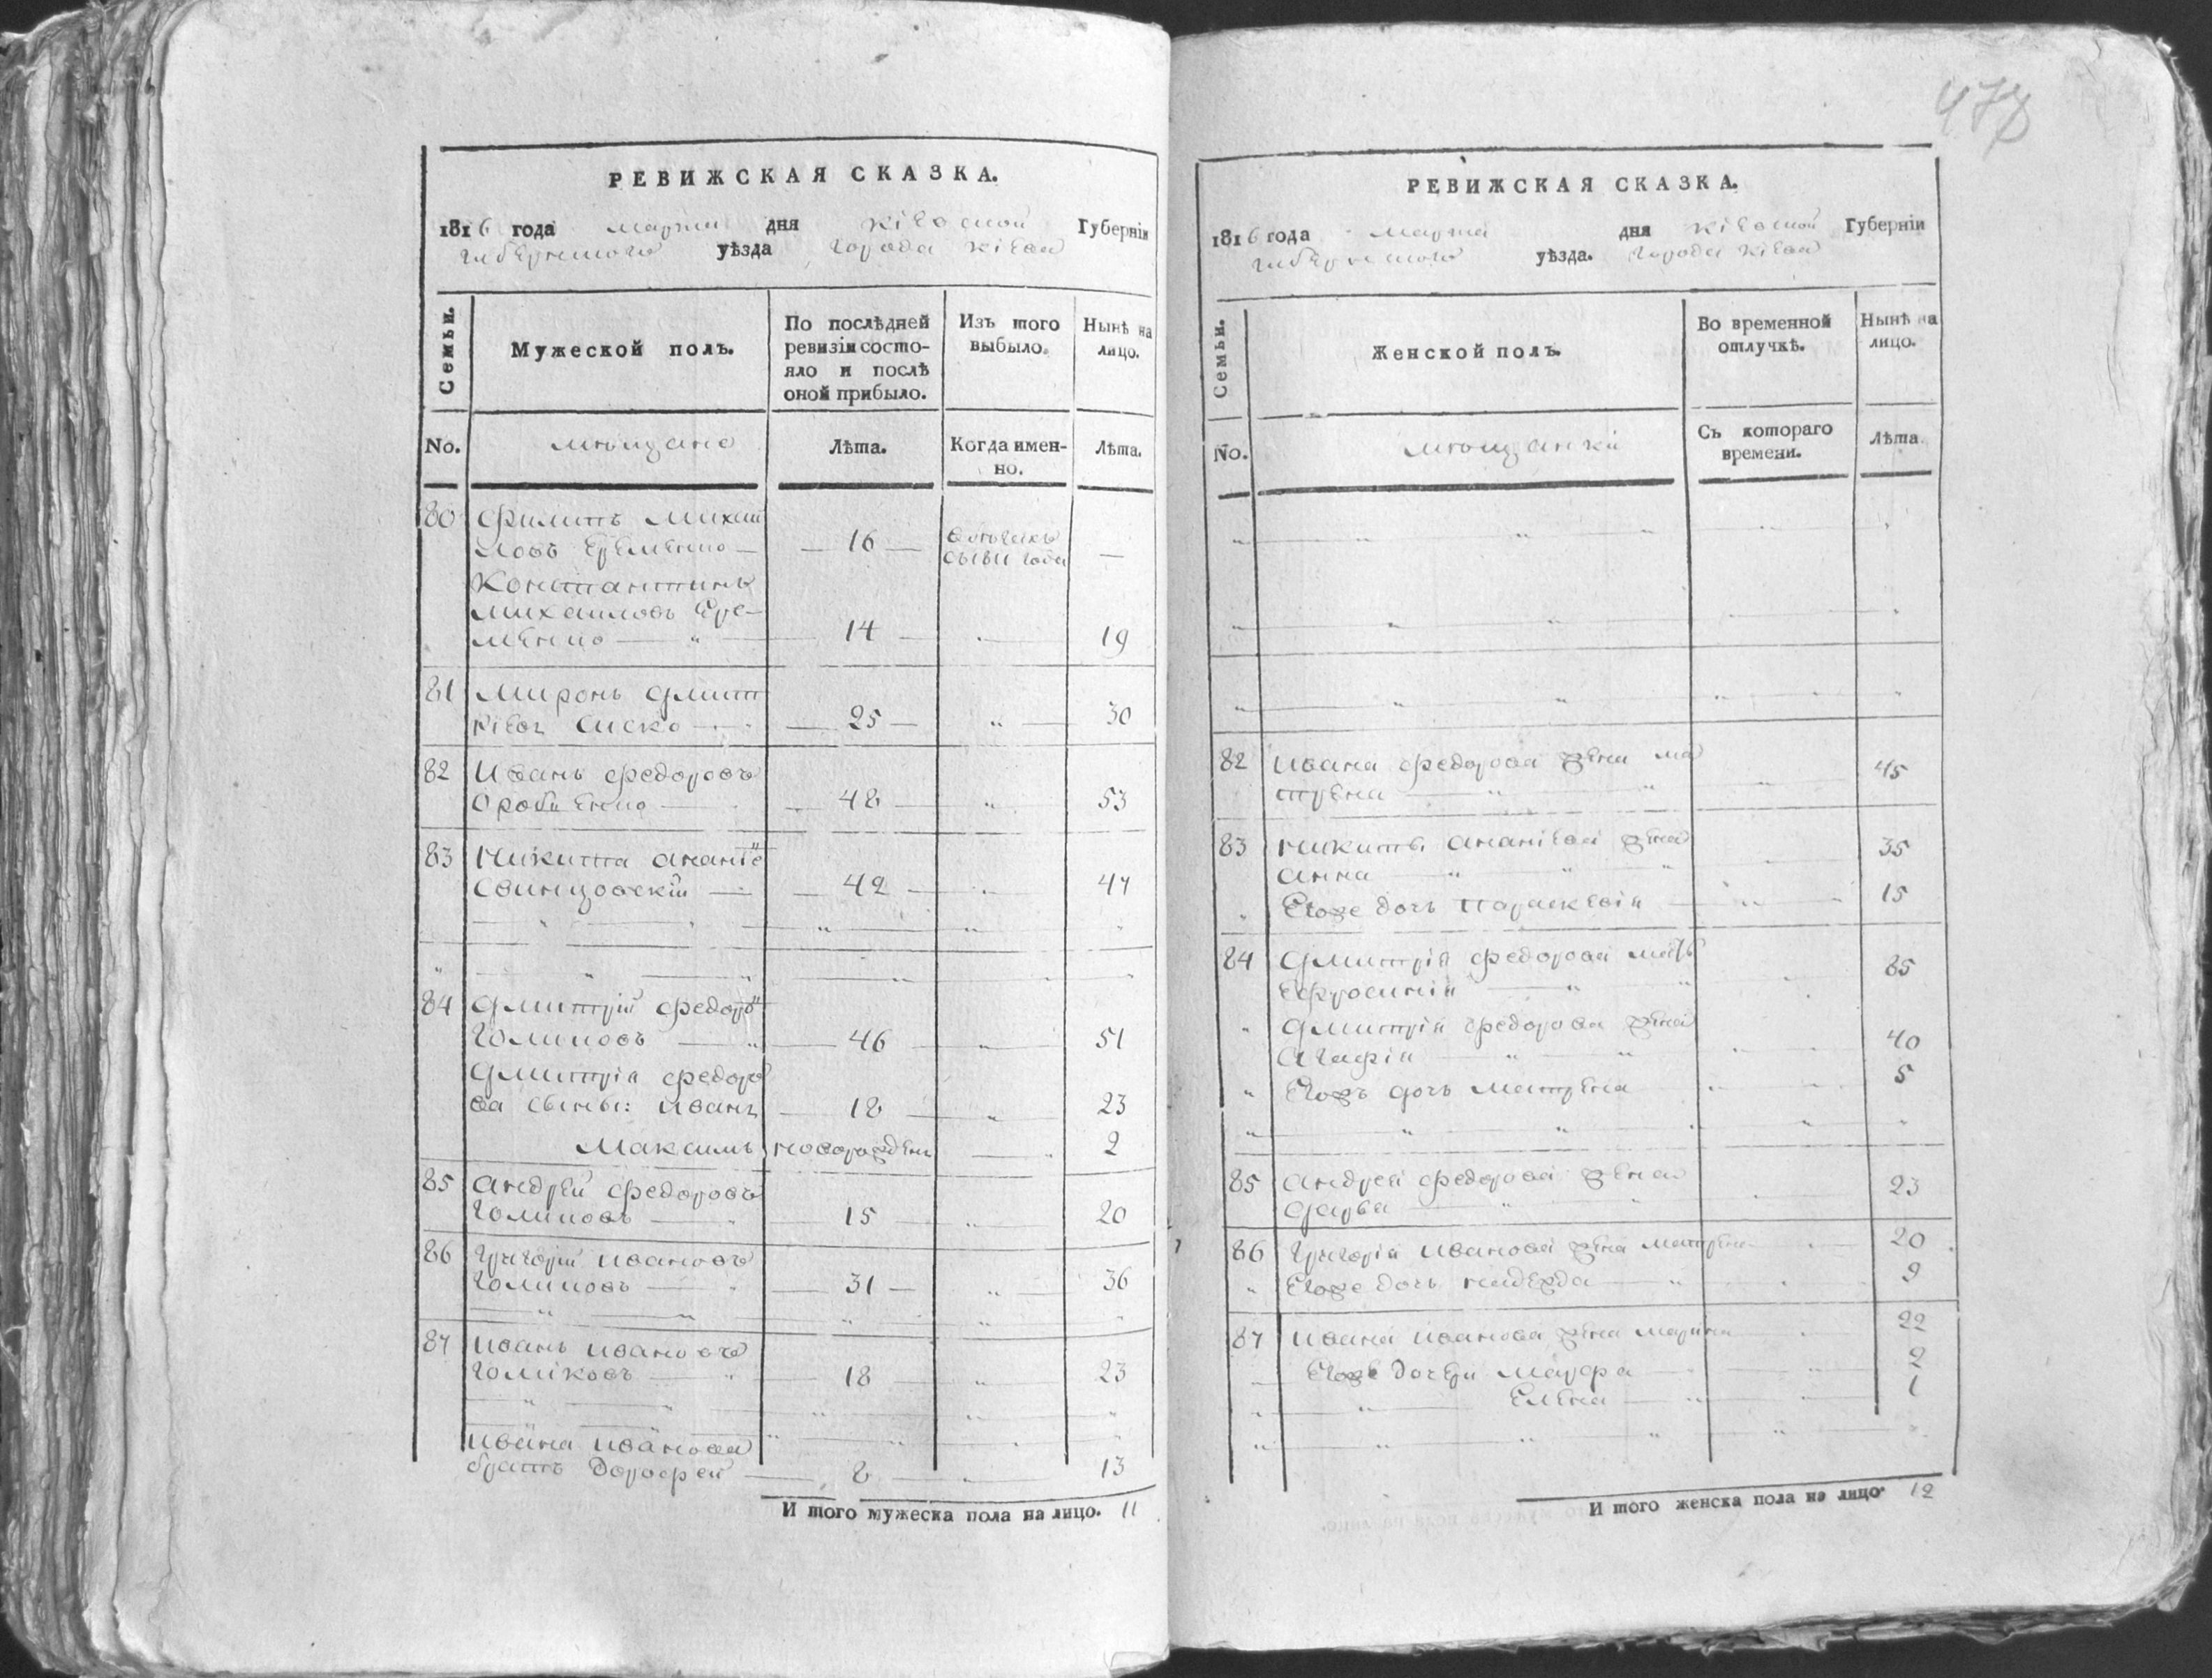 477
РЕВИЖСКАЯ СКАЗКА.
1816 года марта дня Кіевской Губерніи
губернского уѣзда города Кіева
Семьи.
Мужеской полъ.
По послѣдней
ревизіи состо-
яло и послѣ
оной прибыло.
Изъ того
выбыло.
Нынѣ на
лицо.
No.
мѣщане
Лѣта.
Когда имен-
но.
Лѣта.
80 Филипъ Михаи
ловъ Еременко — 16 —
1811 года —
Константинъ
Михаиловъ Ере-
менко — " — 14 — 19
81 Миронъ Дмит
ріевъ Сиско — 25 — " — 30
82 Иванъ Федоровъ
Оробиенко — 48 — " — 53
83 Никита Ананіе
Свинцовскій — 42 — 47
84 Дмитрій Федоро
Голиковъ — 46 — 51
Дмитрія Федоро
ва сыны: Иванъ — 18 — 23
Максимъ новорожден 2
85 Андрей Федоровъ
Голиковъ — 15 — 20
86 Григорій Ивановъ
Голиковъ — 31 — 36
87 Иванъ Ивановъ
Голіковъ — 18 — 23
Ивана Иванова
братъ Дорофей — 8 — 13
И того мужеска пола на лицо. 11
РЕВИЖСКАЯ СКАЗКА.
1816 года марта дня Кіевской Губерніи
губернского уѣзда. города Кіева
Семьи.
Женской полъ.
Во временной
отлучкѣ.
Нынѣ на
лицо.
No.
мѣщанки
Съ котораго
времени.
Лѣта.
82 Ивана Федорова жена Ма
трена — 45
83 Никиты Ананіева жена
Анна — 35
Егоже дочь Параскевія — 15
84 Дмитрія Федорова мать
Ефросинія — 85
Дмитрія Федорова жена
Агафія — 40
Егожъ дочь Матрена 5
85 Андрея Федорова жена
Дарья — 23
86 Григорія Иванова жена Матрена 20
Егоже дочь Надежда — 9
87 Ивана Иванова жена Марина 22
Егоже дочери Мавра 2
Елена — 1
И того женска пола на лицо. 12